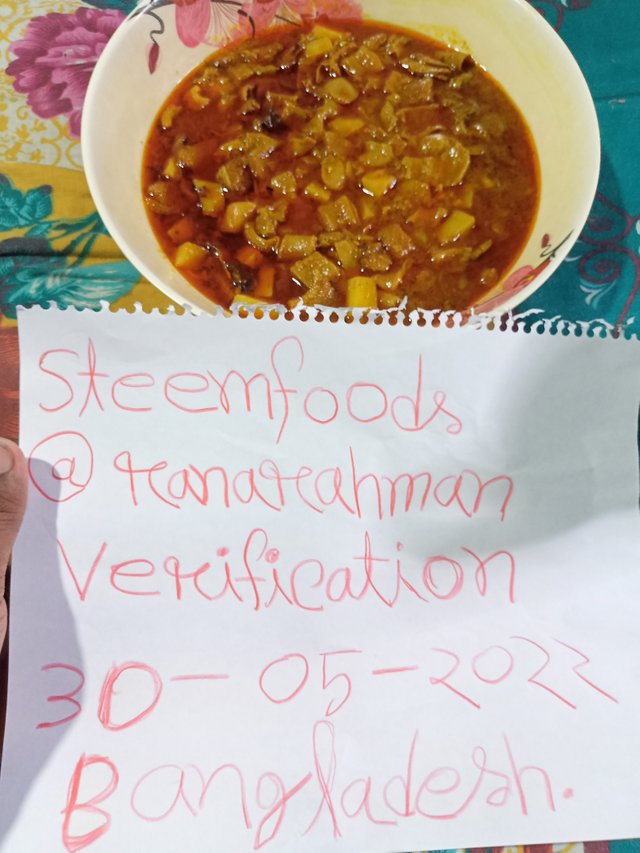 Steemfoods
@ranarahman
Verification
30-05-2022
Bangladesh.